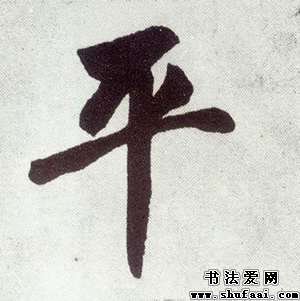 平
书法爱网
www.shufaai.com